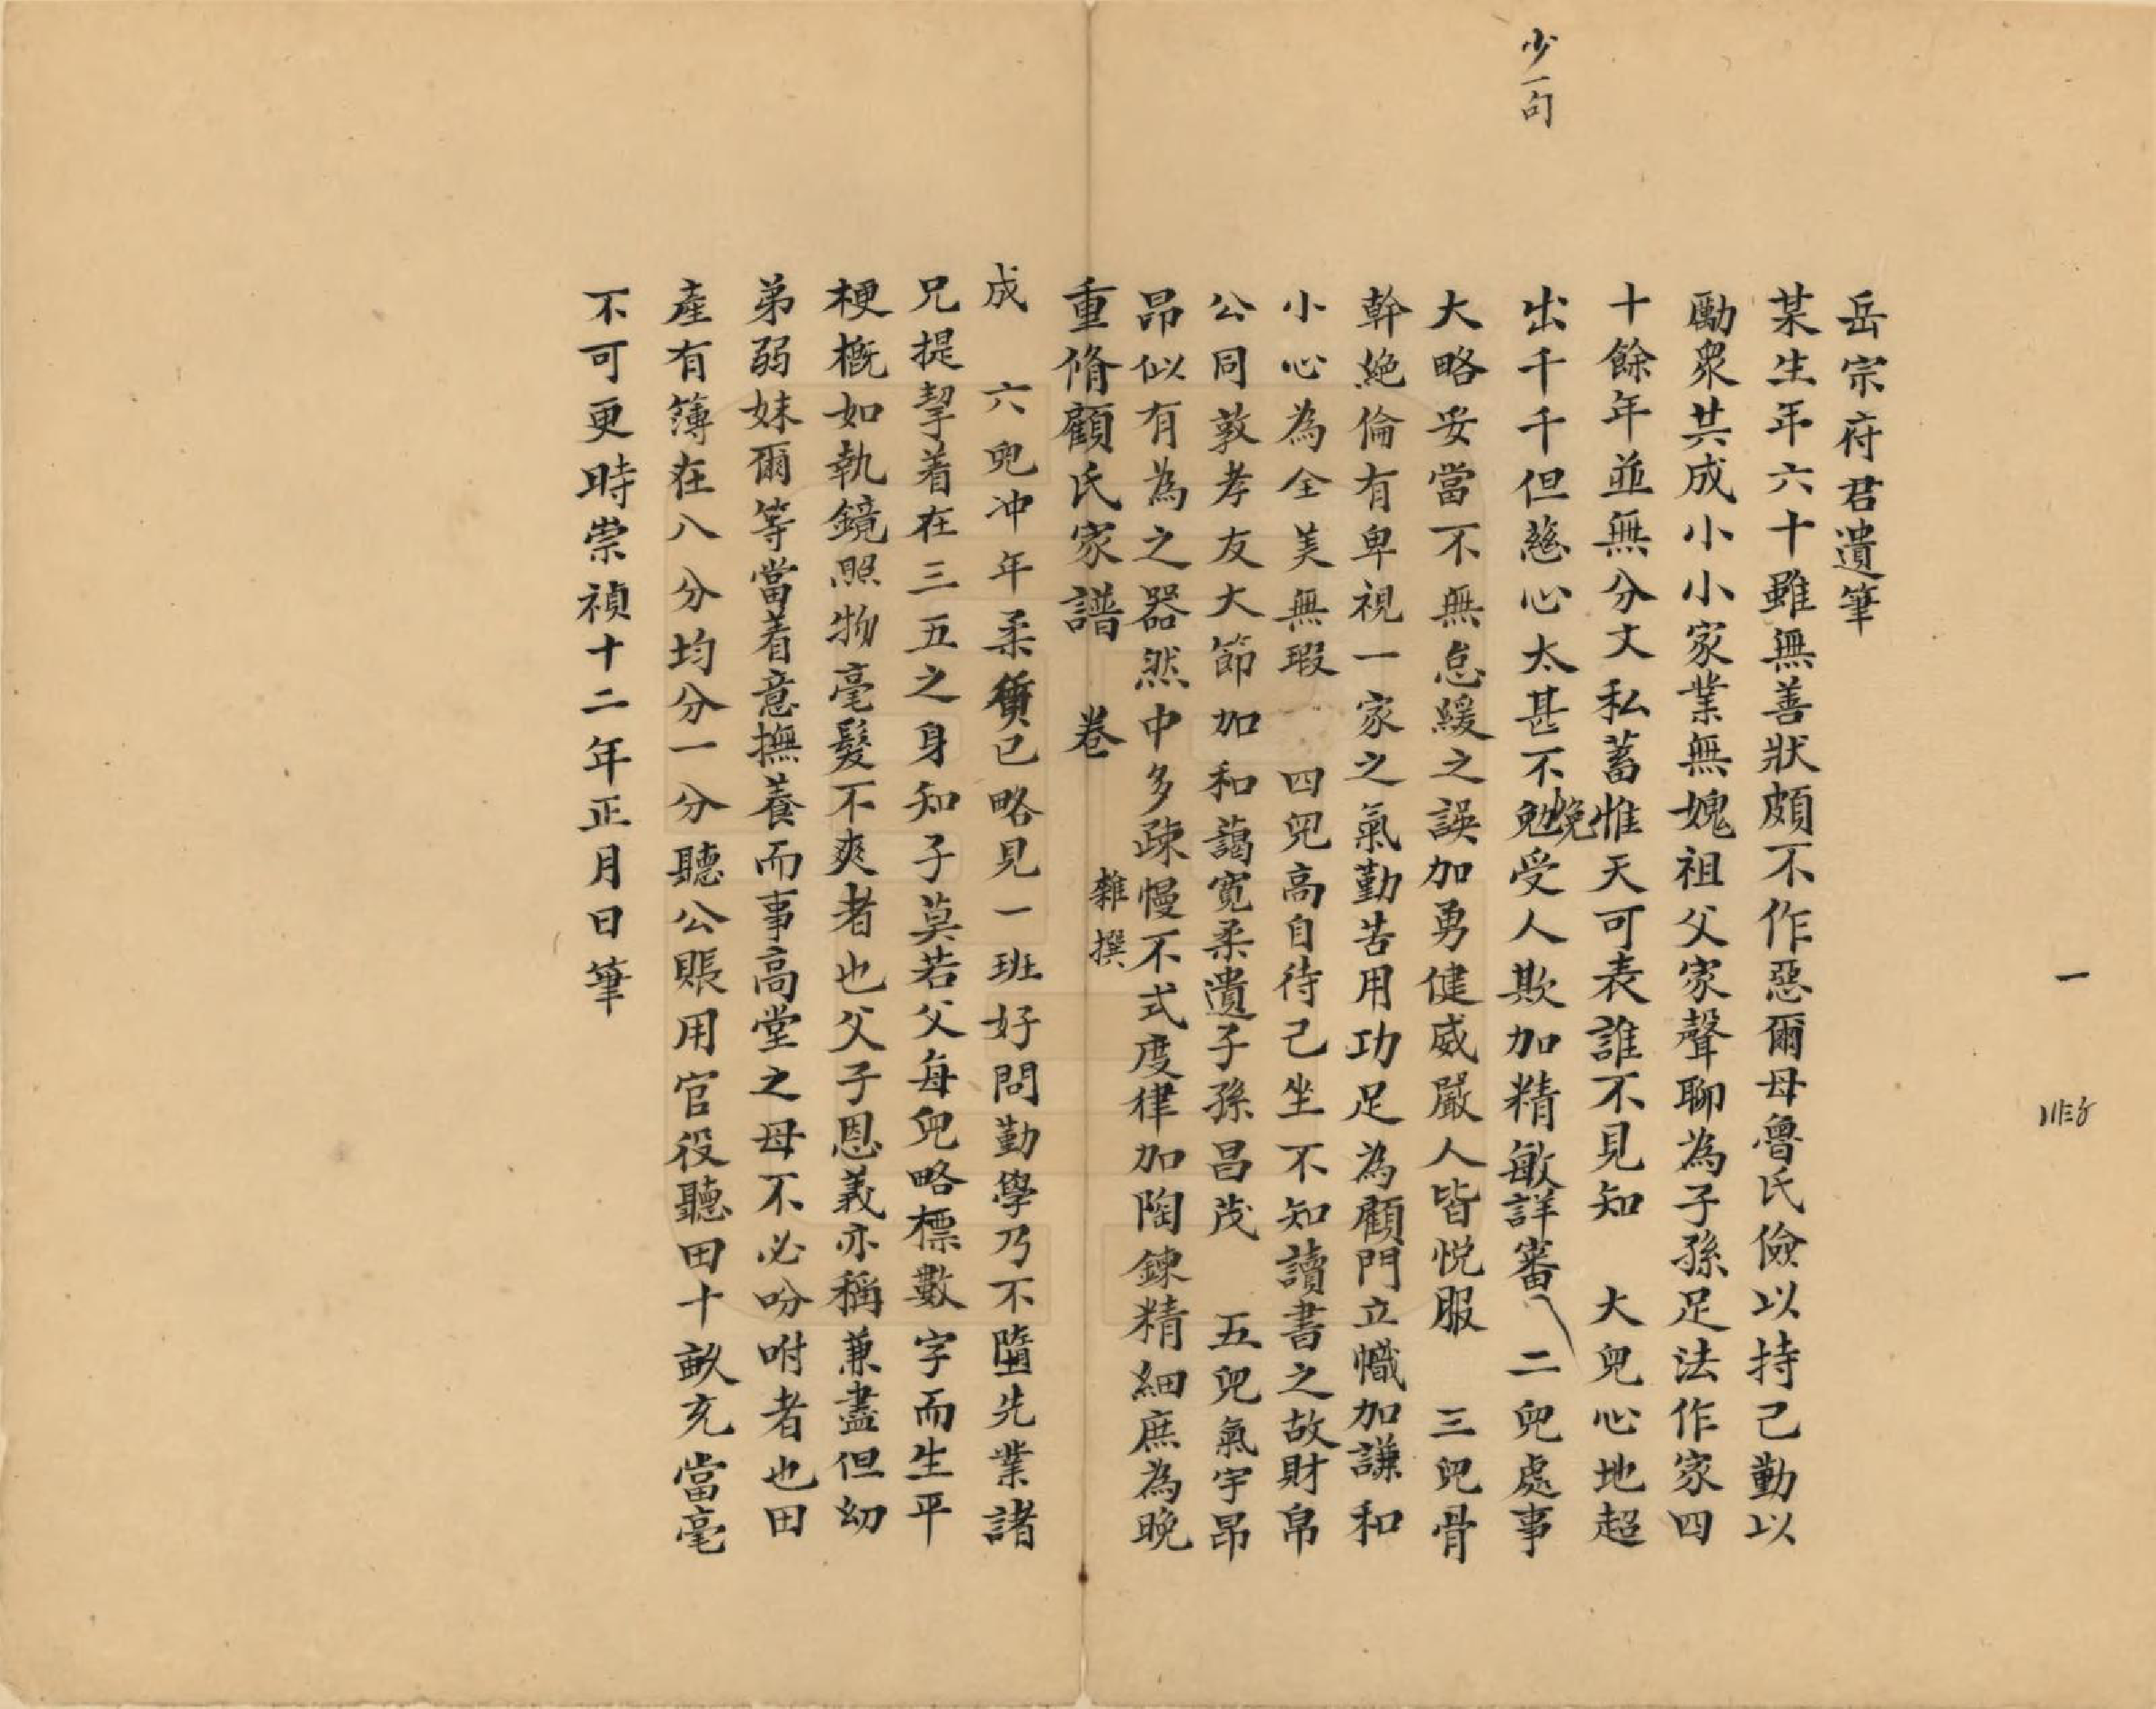 少一句
一
岳宗府君遺筆
某生年六十雖無善狀頗不作惡爾母魯氏儉以持己勤以
勵衆共成小小家業無媿祖父家聲聊為子孫足法作家四
十餘年並無分文私蓄惟天可表誰不見知　大兒心地超
出千千但慈心太甚不勉受人欺加精敏詳審　二兒處事
免
大略妥當不無怠緩之誤加勇健威嚴人皆悅服　三兒骨
幹絶倫有卑視一家之氣勤苦用功足為顧門立幟加謙和
小心為全美無瑕　四兒高自待己坐不知讀書之故財帛
公同敦孝友大節加和藹寛柔遺子孫昌茂　五兒氣宇昂
昂似有為之器然中多疎慢不式度律加陶鍊精細庶為晚
重脩顧氏家譜　卷　雜撰
成　六兒冲年柔質已略見一班好問勤學乃不墮先業諸
兄提挈着在三五之身知子莫若父每兒略標數字而生平
梗概如執鏡照物毫髮不爽者也父子恩義亦稱兼盡但幼
弟弱妹爾等當着意撫養而事高堂之母不必吩咐者也田
產有簿在八分均分一分聽公賬用官役聽田十畝充當毫
不可更時崇禎十二年正月日筆